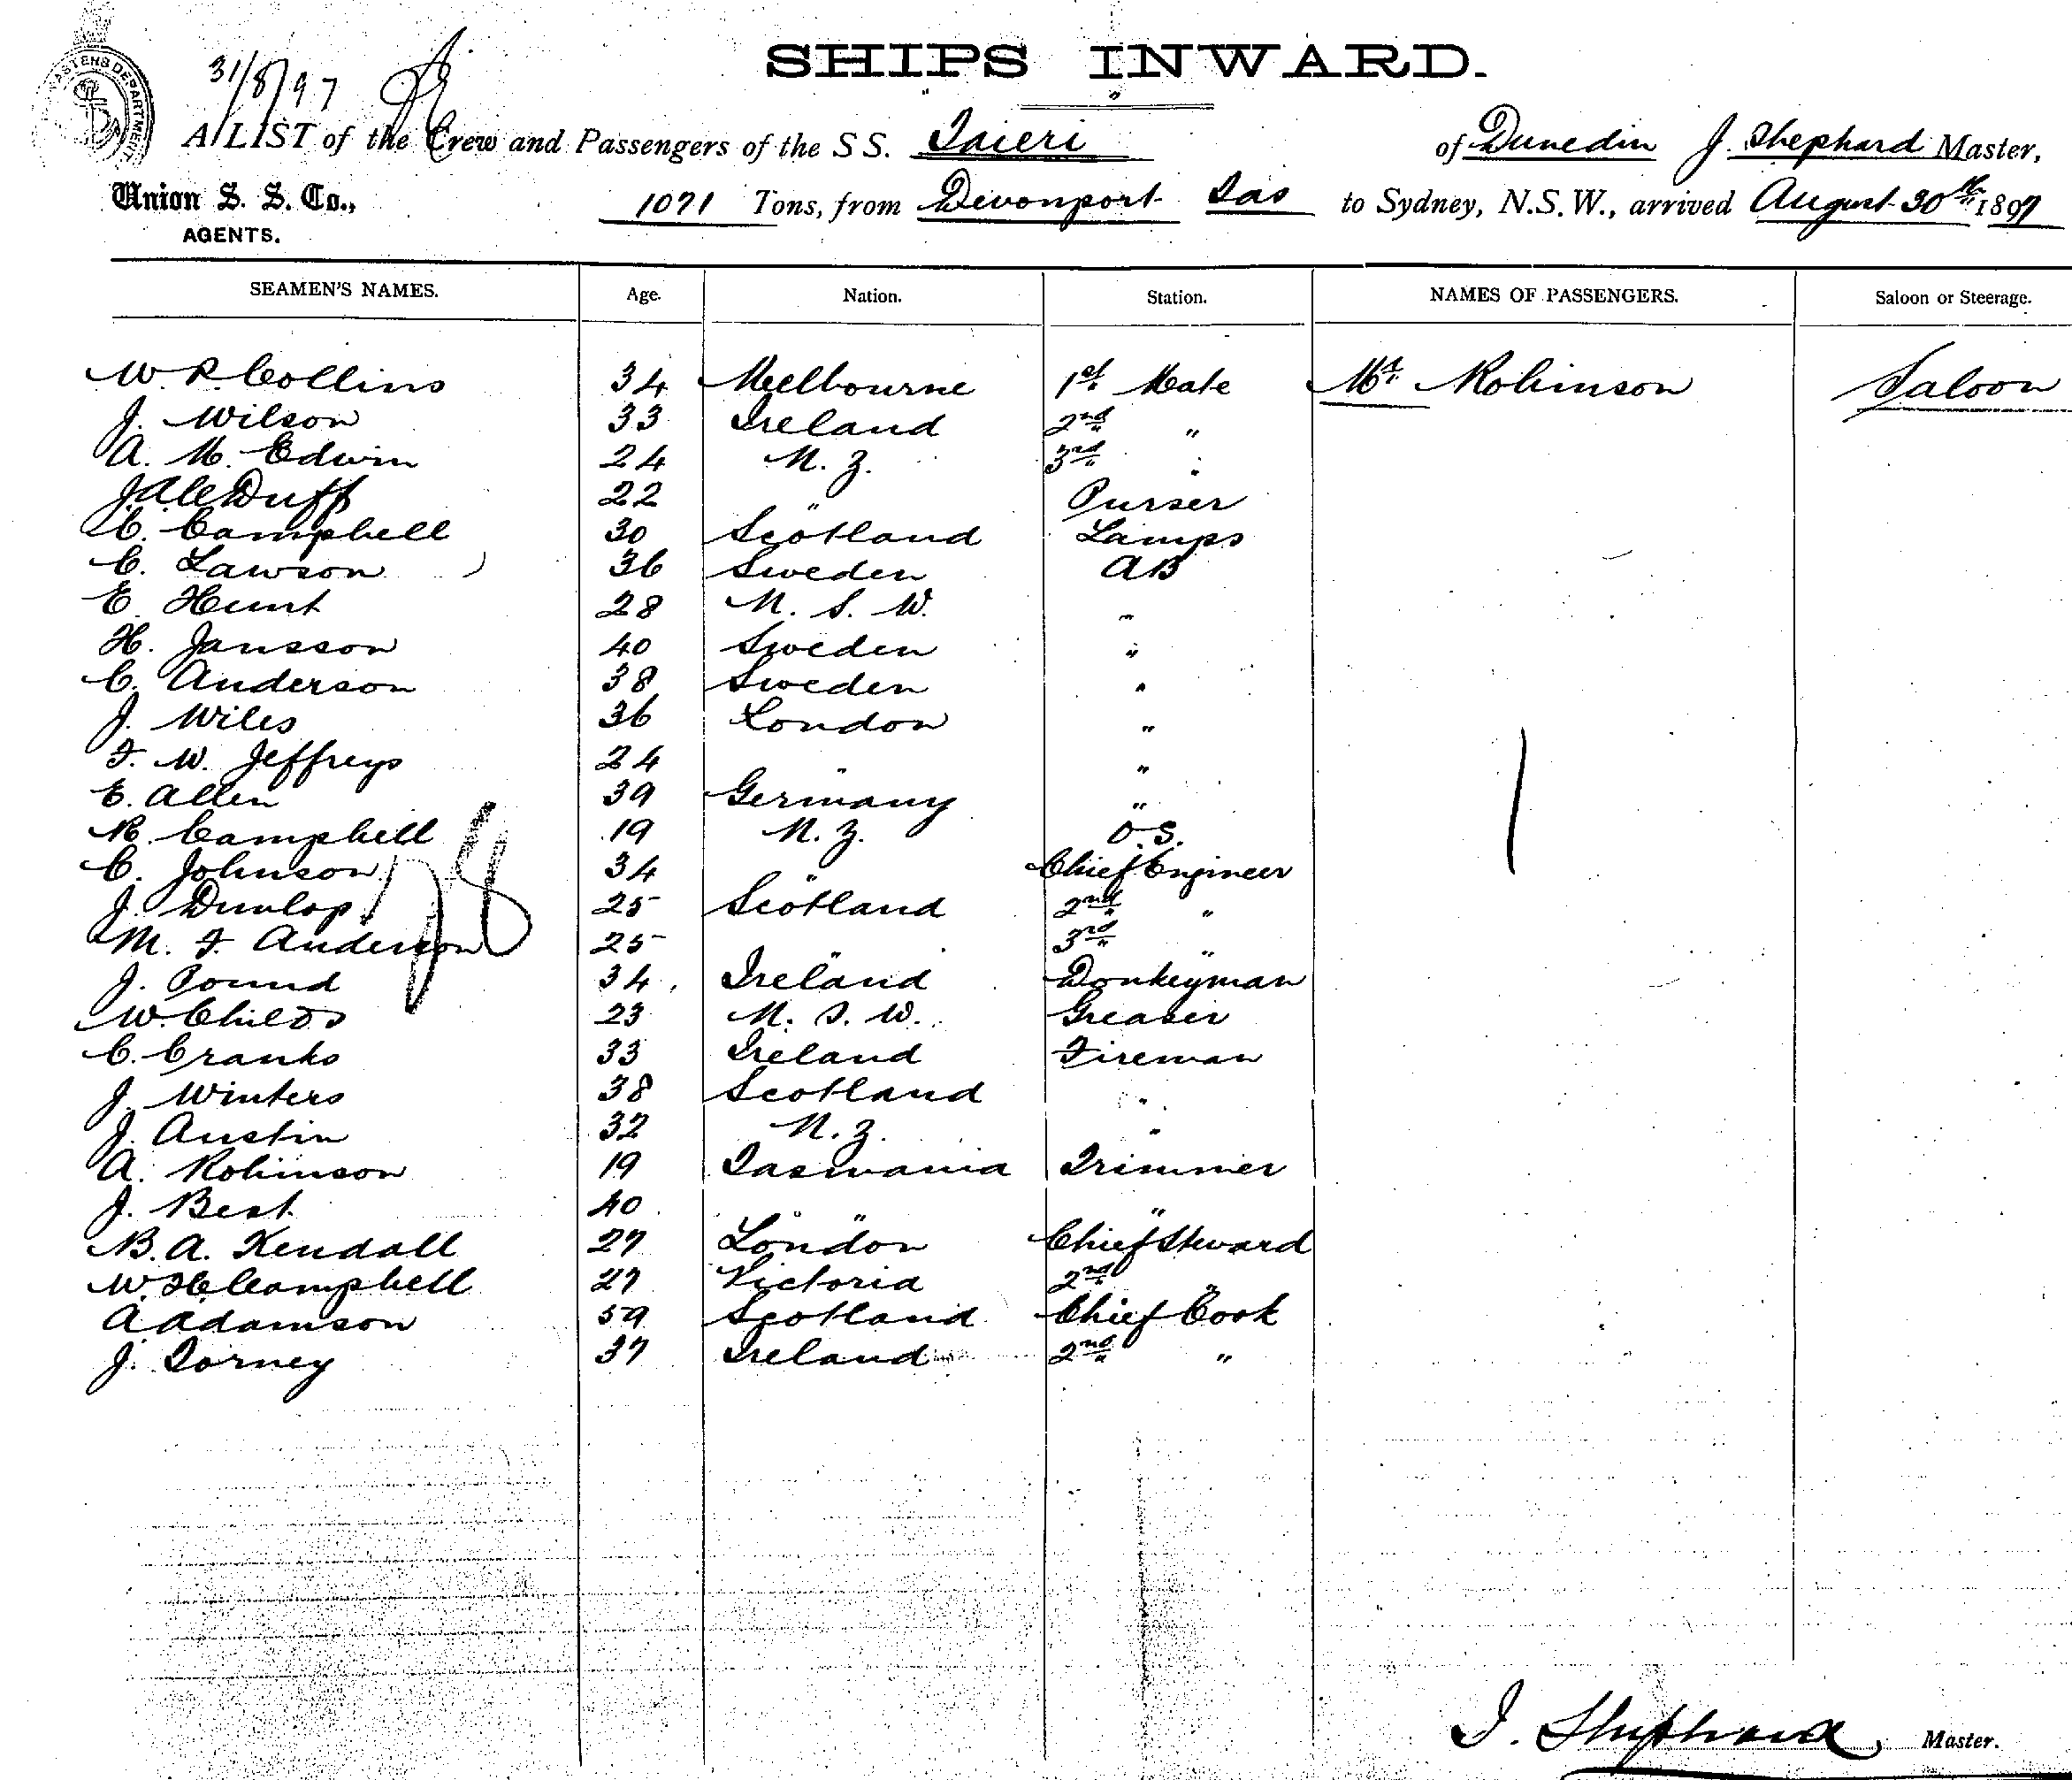 SHIPS INWARD.
MASTERS DEPARTMENT
31/8/97
A LIST of the Crew and Passengers of the S S. Taieri of Dunedin J. Shephard Master,
Union S. S. Co.,
AGENTS.
1071 Tons, from Devonport Tas to Sydney, N.S.W., arrived August 30th 1897
SEAMEN'S NAMES. Age. Nation. Station. NAMES OF PASSENGERS. Saloon or Steerage.
W. P. Collins 34 Melbourne 1st Mate Mr. Robinson Saloon
J. Wilson 33 Ireland 2nd "
A. M. Edwin 24 N. Z. 3rd "
Duff 22 " Purser
C. Campbell 30 Scotland Lamps
C. Lawson 36 Sweden AB
E. Hunt 28 N. S. W. "
H. Jansson 40 Sweden "
C. Anderson 38 Sweden "
J. Wiles 36 London "
F. W. Jeffreys 24 " "
E. Allen 39 Germany "
R. Campbell 19 N. Z. O.S.
C. Johnson 34 " Chief Engineer
J. Dunlop 25 Scotland 2nd "
M. F. Anderson 25 " 3rd "
J. Pound 34 Ireland Donkeyman
W. Childs 23 N. S. W. Greaser
C. Cranks 33 Ireland Fireman
J. Winters 38 Scotland "
J. Austin 32 N. Z. "
A. Robinson 19 Tasmania Trimmer
J. Best 40 " "
B. A. Kendall 27 London Chief Steward
W. H. Campbell 27 Victoria 2nd "
A Adamson 59 Scotland Chief Cook
J. Torney 37 Ireland 2nd "
28
1
J. Shephard Master.